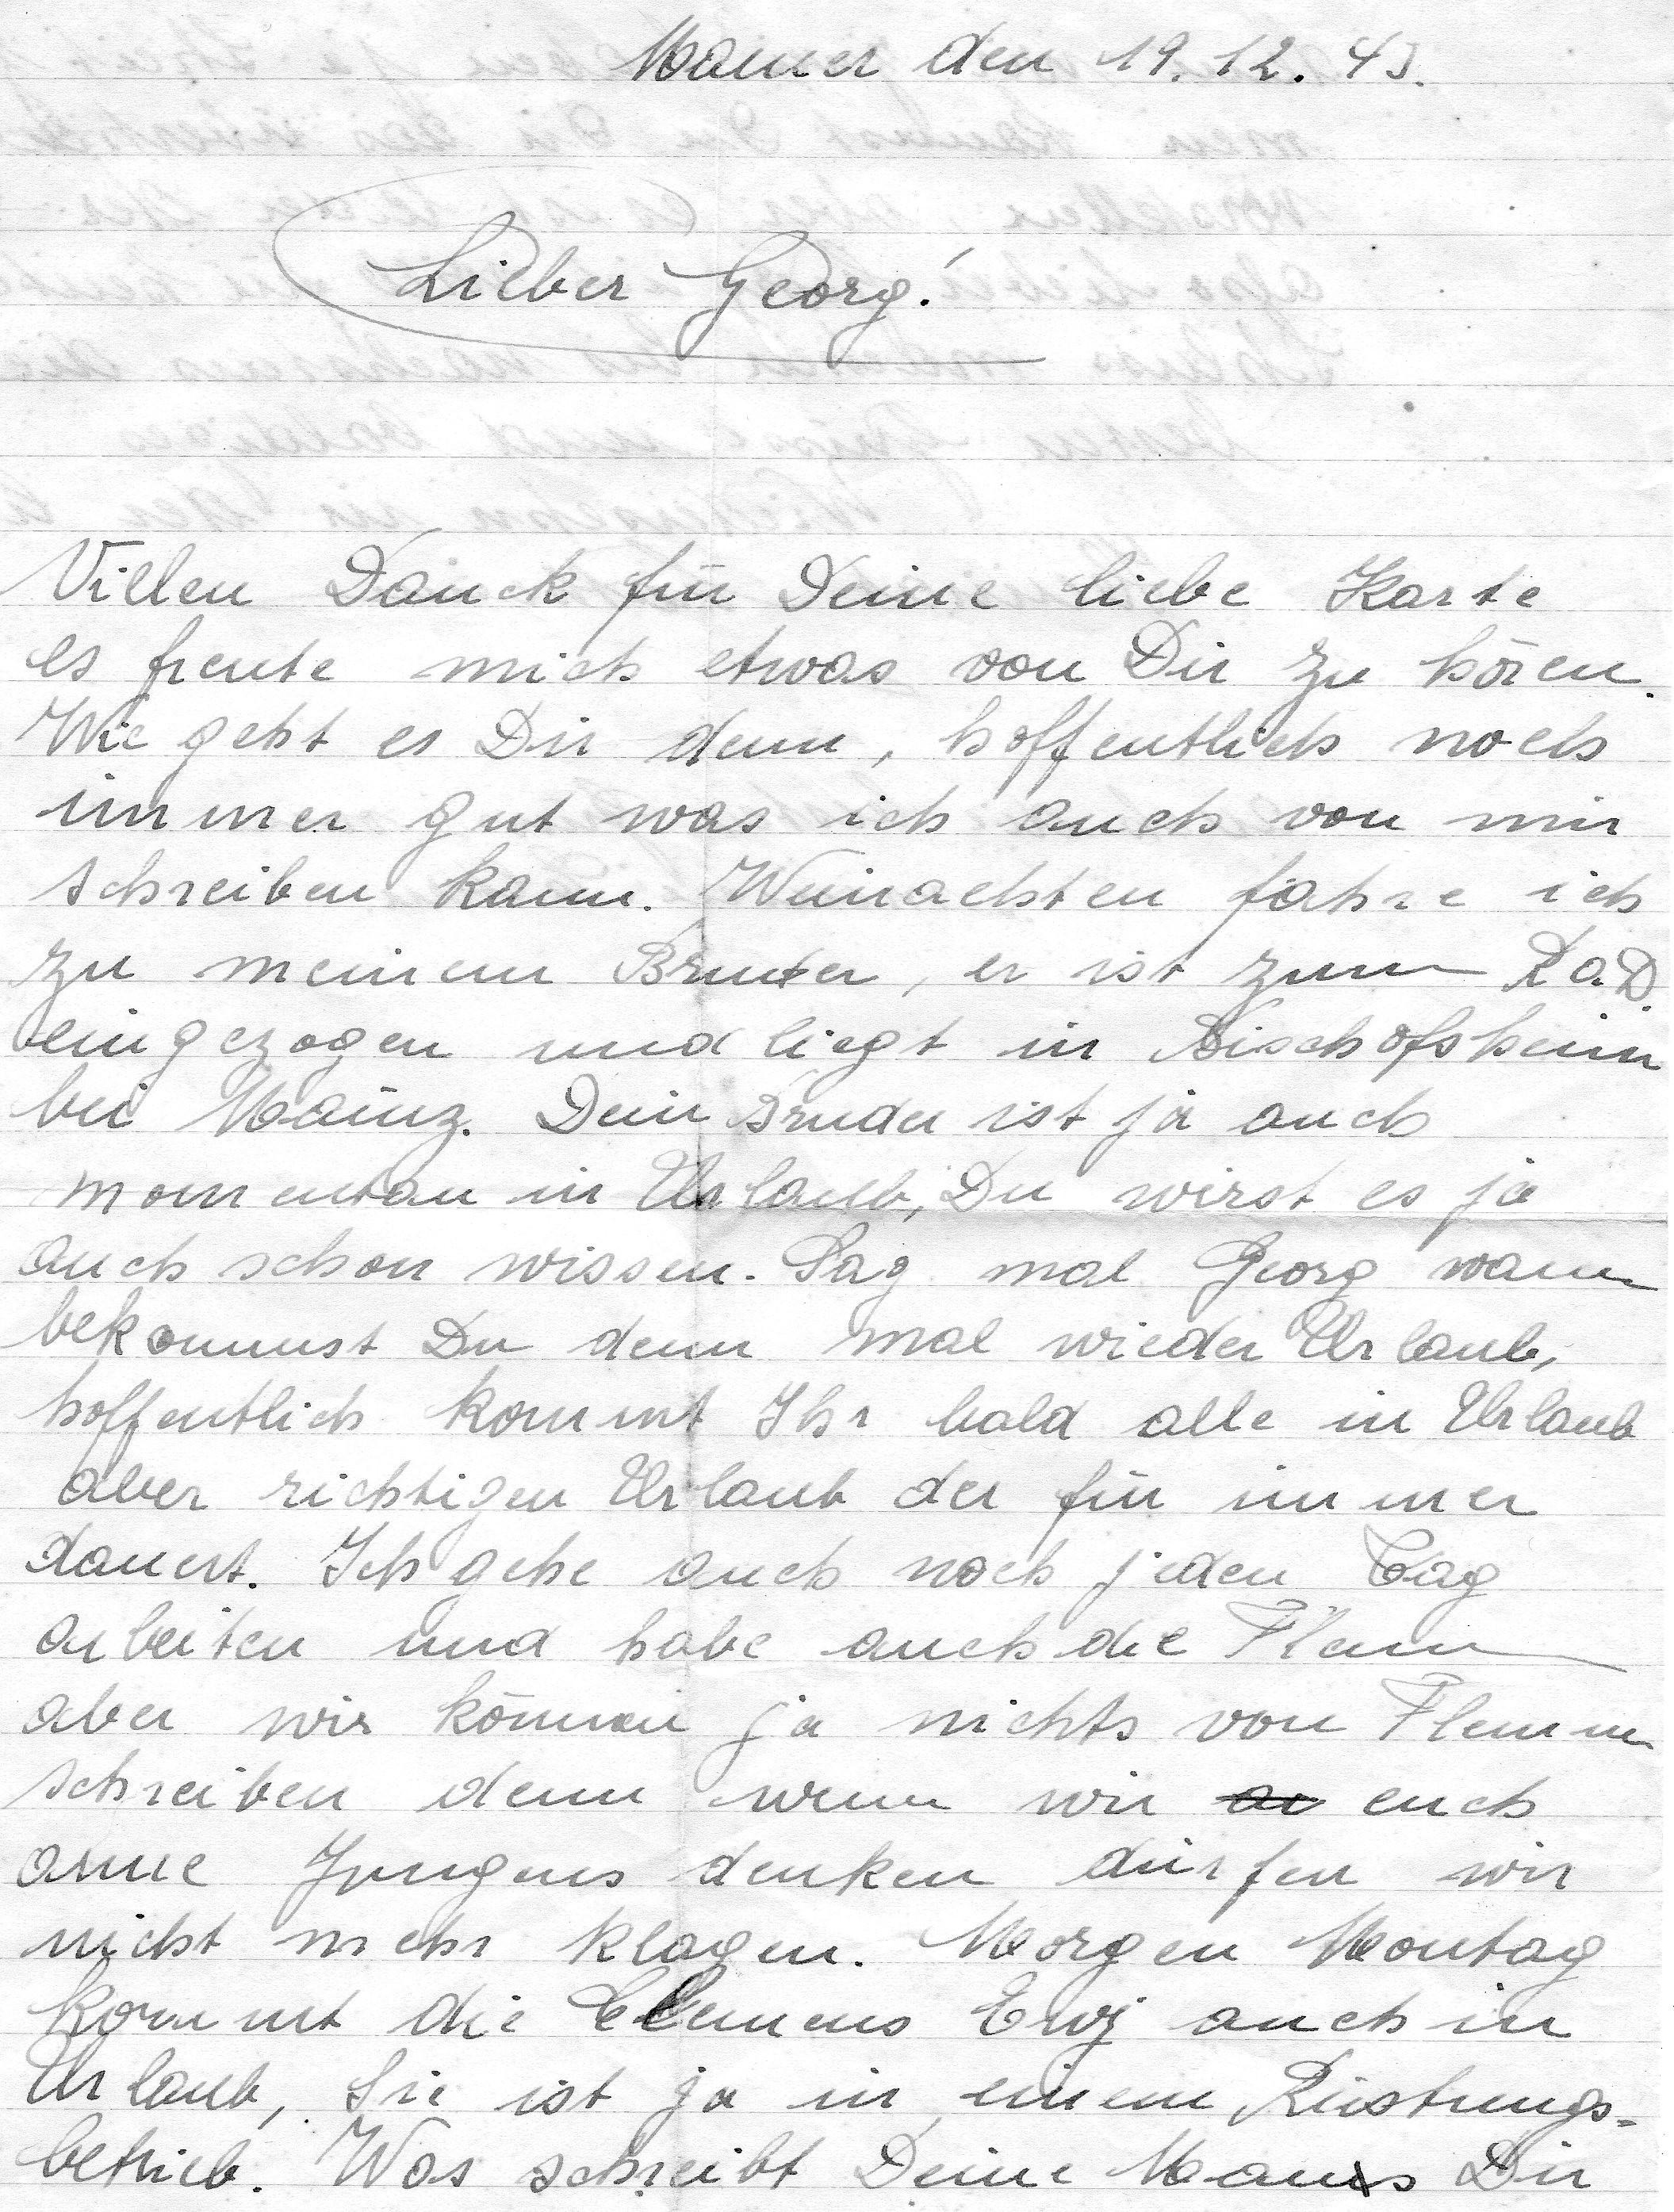 Mamer den 19. 12. 43.
Lieber Georg!
Villen Danck für Deine liebe Karte
es freute mich etwas von Dir zu hören.
Wie geht es Dir denn, hoffentlich noch
immer gut was ich auch von mir
schreiben kann. Weinachten fahre ich
zu meinem Bruder, er ist zum R.a.D.
eingezogen und liegt in Bischofsheim
bei Mainz. Dein Bruder ist ja auch
momentan in Urlaub, Du wirst es ja
auch schon wissen. Sag mal Georg wann
bekommst Du denn mal wieder Urlaub,
hoffentlich kommt Ihr bald alle in Urlaub
aber richtigen Urlaub der für immer
dauert. Ich gehe auch noch jeden Tag
arbeiten und habe auch die Flem
aber wir können ja nichts von Flemm
schreiben denn wenn wir euch
arme Jungens denken dürfen wir
nicht mehr klagen. Morgen Montag
kommt die Clemens Ewj auch in
Urlaub, Sie ist ja in einem Rüstungs-
betrieb. Was schreibt Deine Maus Dir